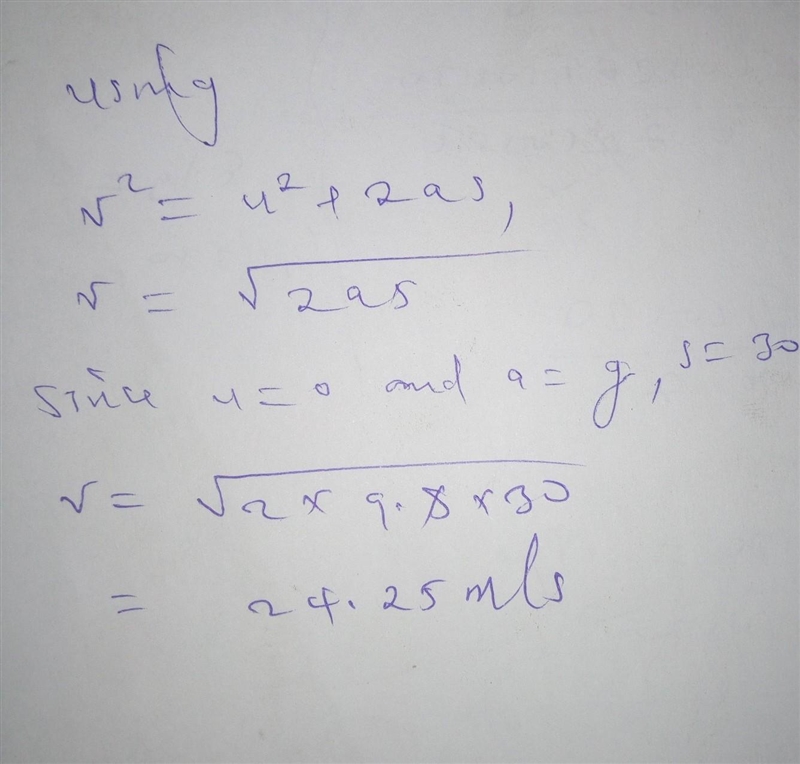 using
v² = u² + 2as,
v = √2as
since u = 0 and a = g, s = 30
v = √2 x 9.8 x 30
= 24.25 m/s